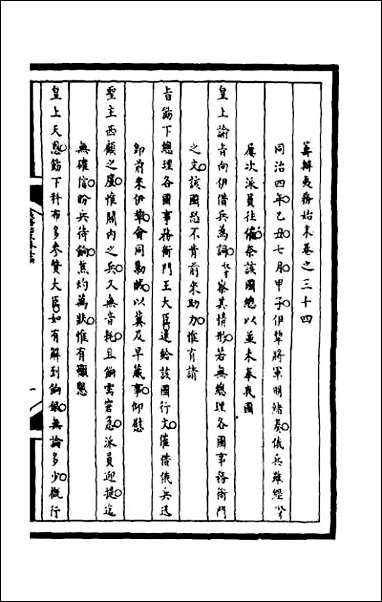 籌辦夷務始末卷之三十四
同治四年乙丑七月甲子伊犂將軍明緒奏俄兵雖經
屢次派員往催祭該國總以並未奉我國
皇上諭旨向伊借兵為詞察其情形若無總理各國事務衙門
之文該國恐不肯前來助力惟有請
旨飭下總理各國事務衙門王大臣速給該國行文催借俄兵迅
即前來伊犂會同勦賊以冀及早蕆事仰慰
聖主西顧之廑惟關內之兵又無音耗且餉需窘急派員迎提迄
無確信盼兵待餉焦灼萬狀惟有懇
皇上天恩飭下科布多參贊大臣如有解到餉銀無論多少概行